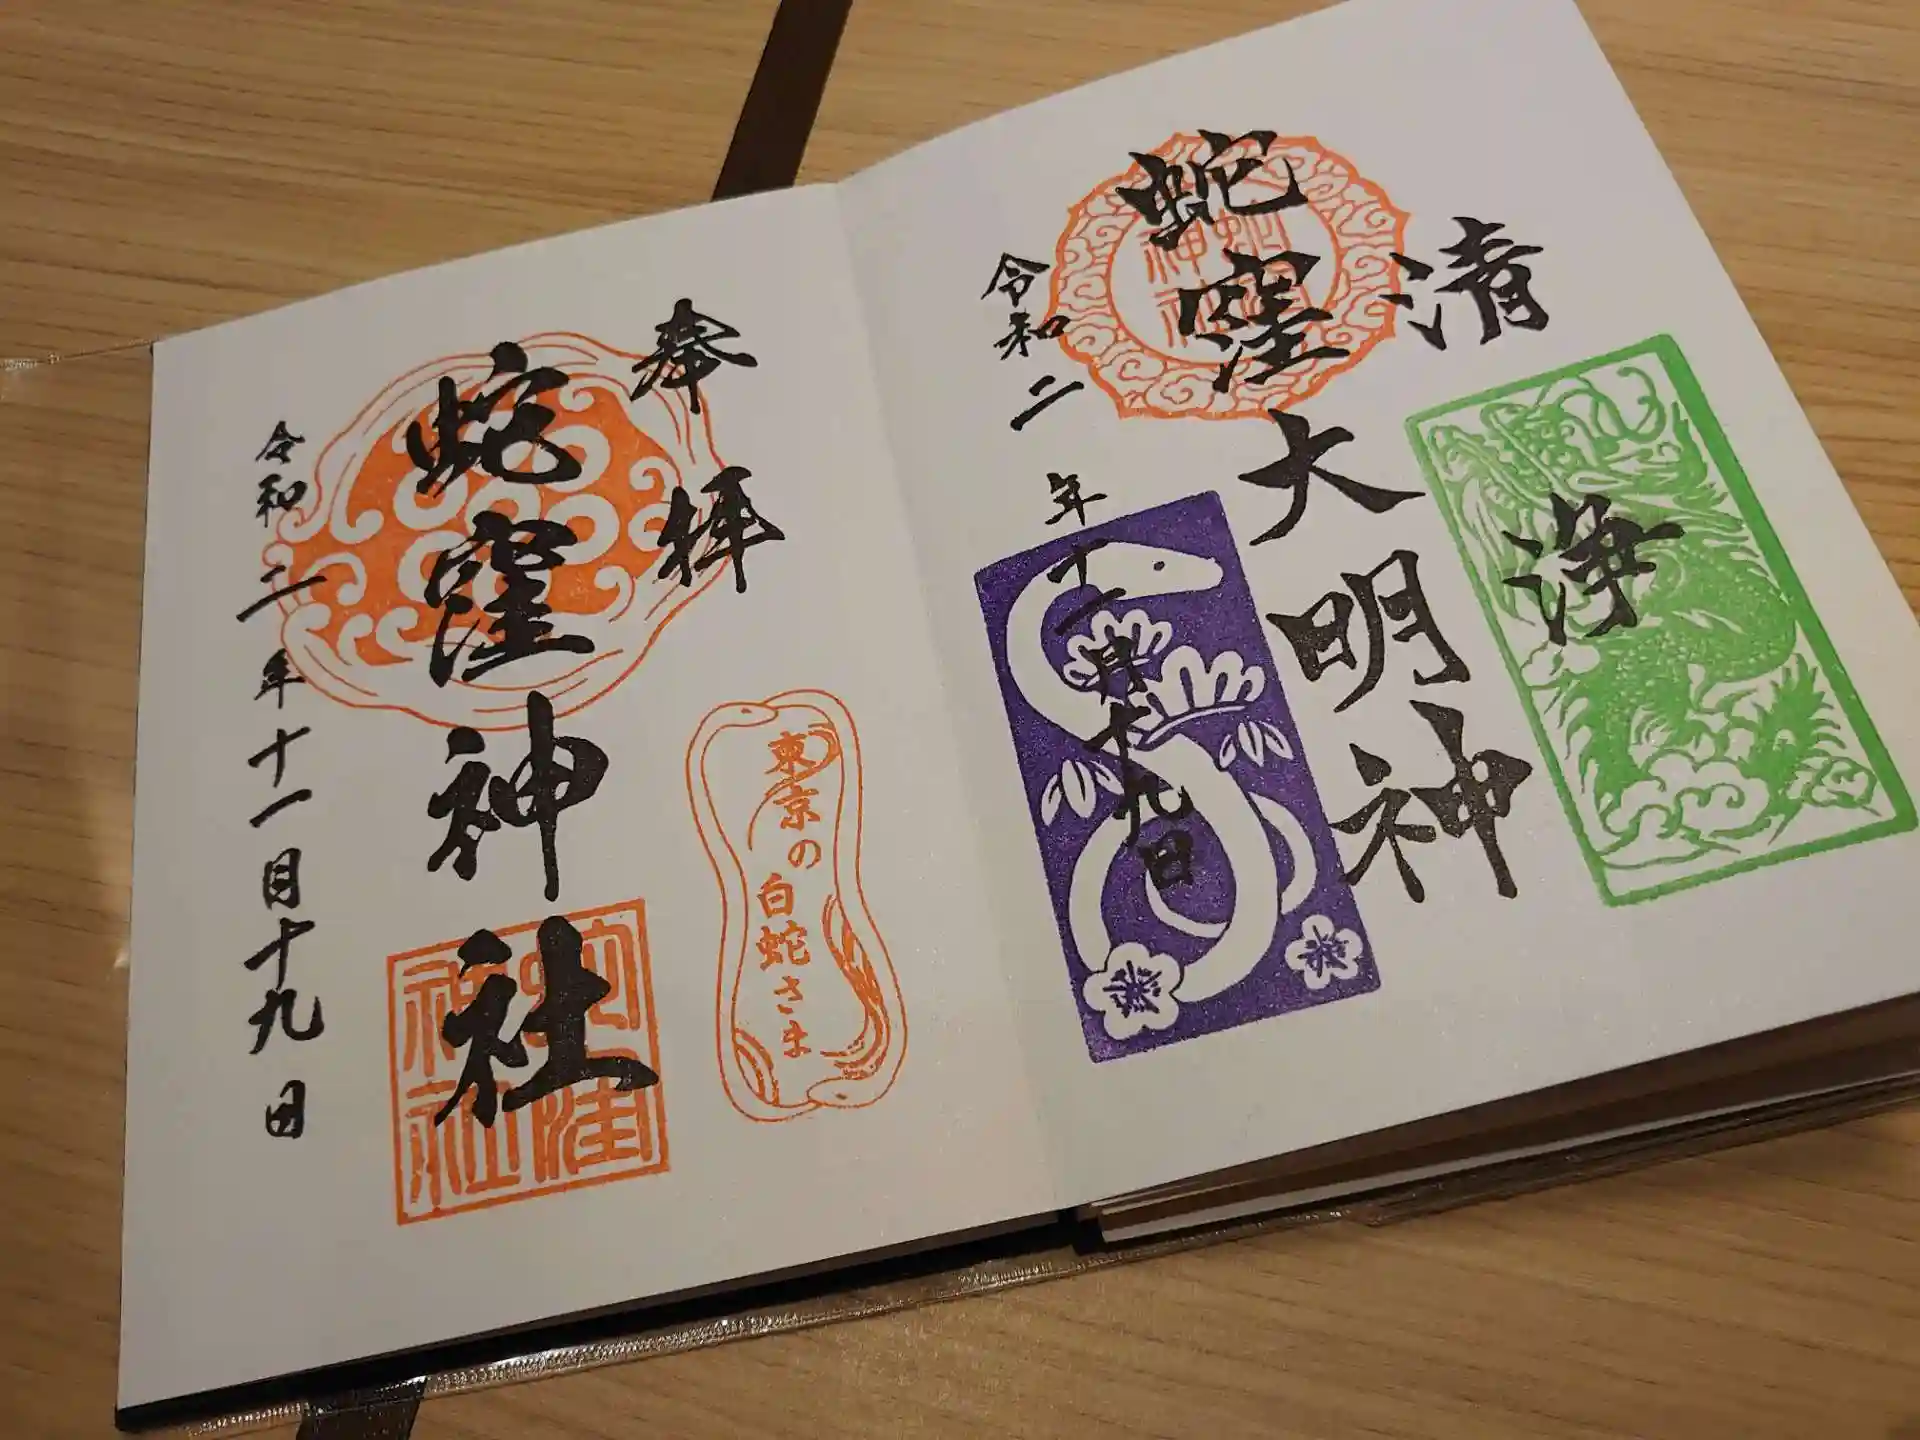 清浄
蛇窪大明神
蛇窪神社
令和二年十一月十九日
奉拝
蛇窪神社
東京の白蛇さま
蛇窪神社
令和二年十一月十九日